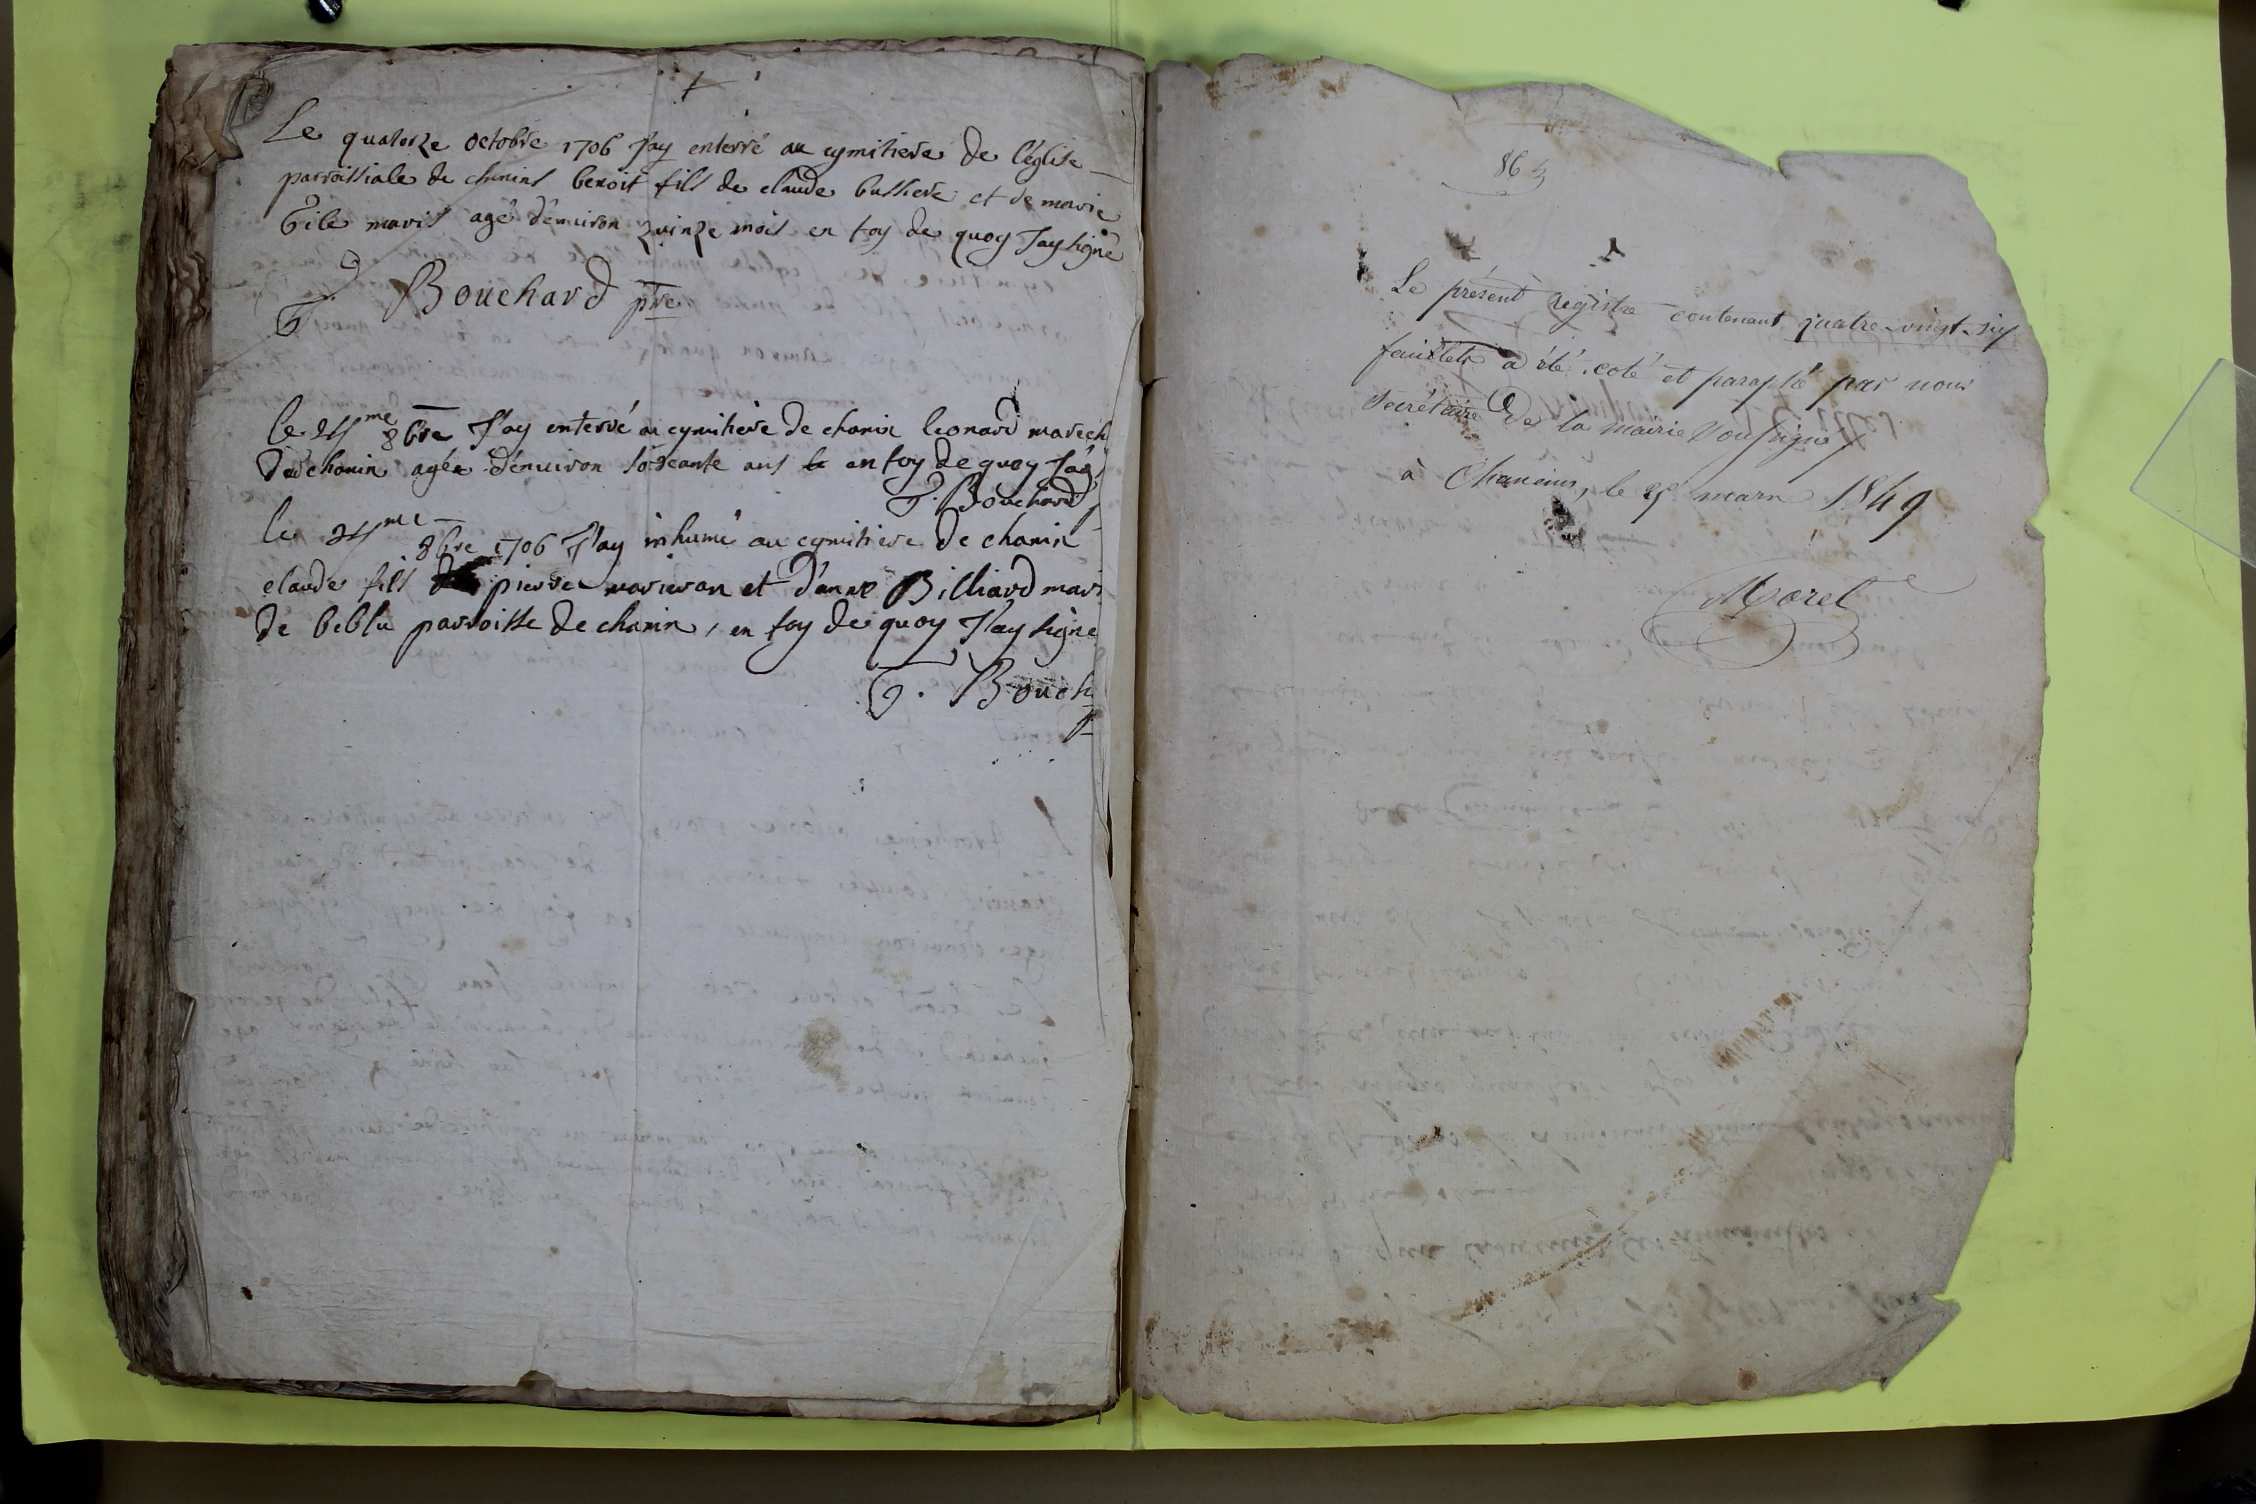 Le quatorze octobre 1706 Jay enterré au cymitiere de l'église
parroissiale de chanins benoit fils de claude bussiere et de marie
mariés agé d'environ quinze mois en foy de quoy Jay signé
Bouchard ptre
le me 8bre J'ay enterré au cymitiere de chanin leonard marech
de chanin agée d'environ soixante ans en foy de quoy Jay
Bouchard
le me 8bre 1706 J'ay inhumé au cymitiere de chanin
claude fils de pierre et d'anne Billiard mari
de parroisse de chanin, en foy de quoy J'ay signé
Bouch
86
Le présent registre contenant quatre-vingt-six
feuillets a été coté et paraphé par nous
secrétaire de la mairie soussigné
à Chanains, le mars 1849
Morel